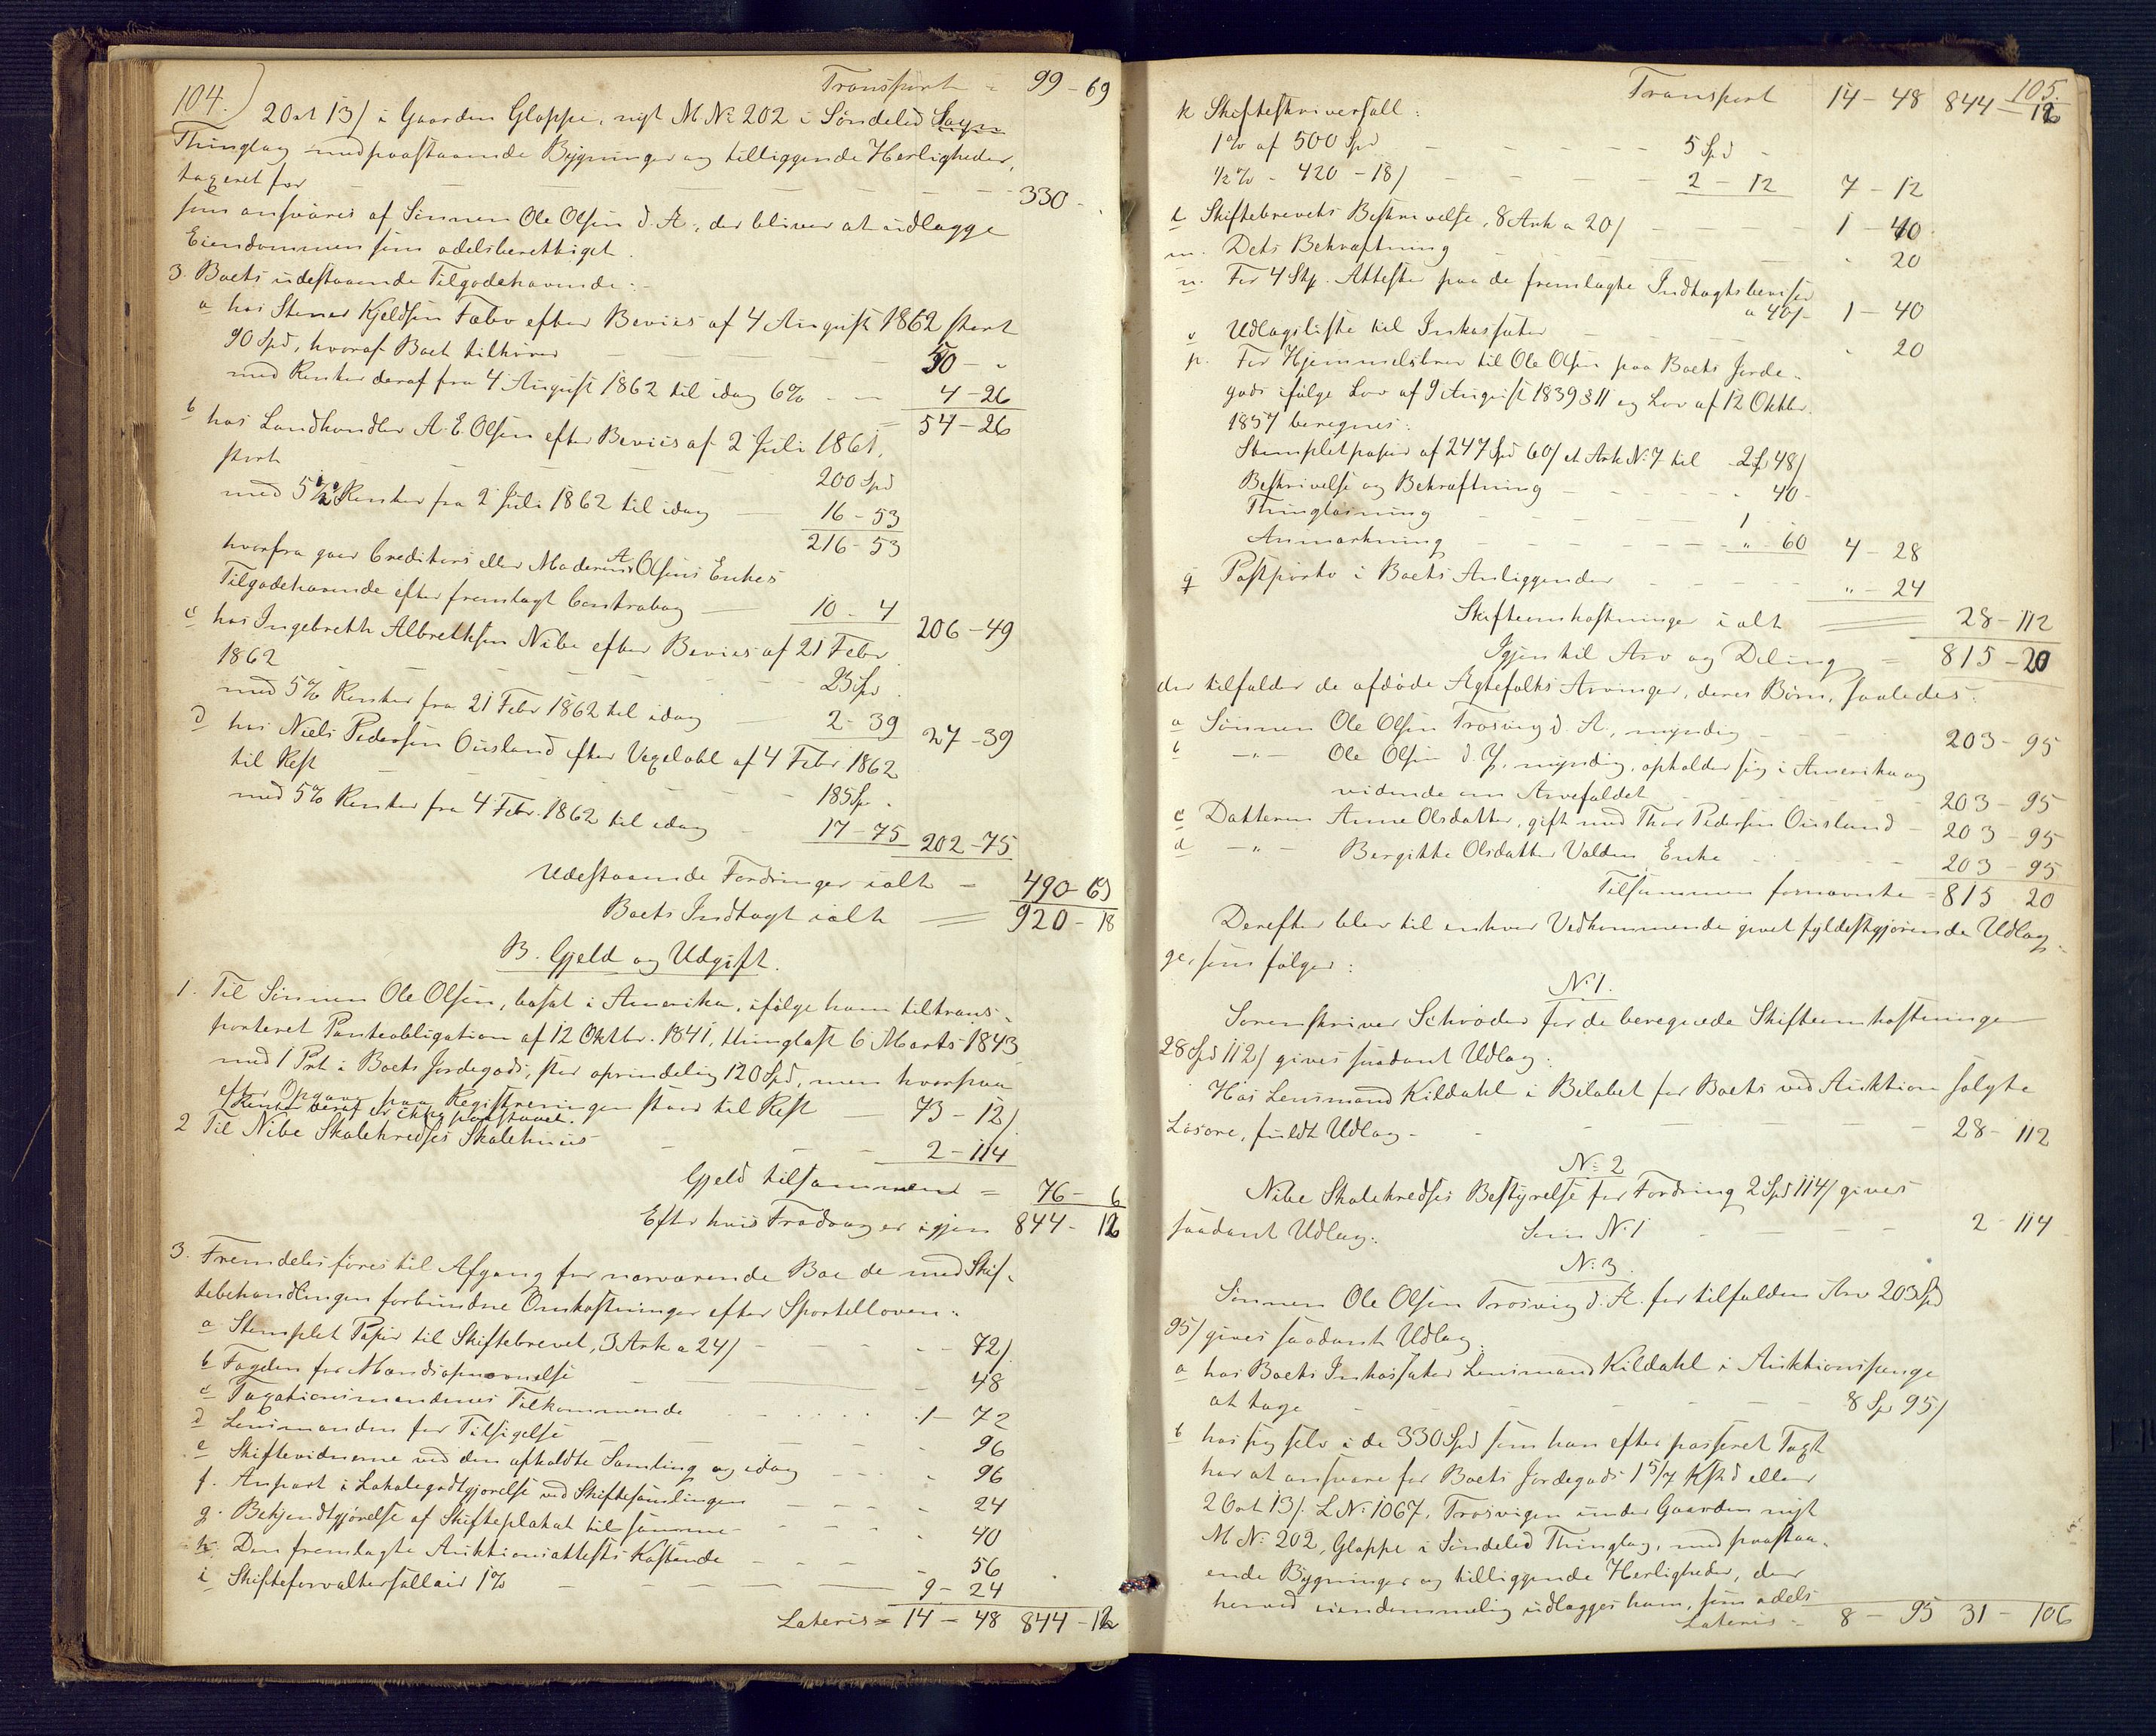 104.)
Transport = 99 - 69
2 Ort 13/ i Gaarden Gloppe, nyt M. No 202 i Søndeled Sogn
Thinglag med paastaaende Bygninger og tilliggende Herligheder,
taxeret for — — — — 330 - "
som ansvares af Sønnen Ole Olsen d. Æ., der bliver at udlægge
Eiendommen som odelsberettiget.
3. Boets udestaaende Tilgodehavende:
a hos Stener Kjeldsen Fæbo efter Beviis af 4 August 1862 stort
90 Spd, hvoraf Boet tilhører — — — 50 - "
med Renter deraf fra 4 August 1862 til idag 6% - — 4 - 26
= 54 - 26
b hos Landhandler A. E. Olsen efter Beviis af 2 Juli 1861,
stort — — — 200 Spd
med 5 1/2 % Renter fra 2 Juli 1862 til idag — 16 - 53
216 - 53
hvorfra gaar Creditors eller Moderens A. Olsens Enkes
Tilgodehavende efter fremlagt Contrabog — 10 - 4 206 - 49
c hos Ingebreth Albrethsen Nibe efter Beviis af 21 Febr.
1862 — — — 25 Spd.
med 5% Renter fra 21 Febr 1862 til idag — 2 - 39 27 - 39
d hos Niels Pedersen Ousland efter Vexelobl af 4 Febr 1862
til Rest — — — 185 Sp. "
med 5% Renter fra 4 Febr. 1862 til idag - 17 - 75 202 - 75
Udestaaende Fordringer ialt = 490 - 69
Boets Indtægt ialt = 920 - 18
B. Gjeld og Udgift.
1. Til Sønnen Ole Olsen, bosat i Amerika, ifølge ham tiltrans-
porteret Panteobligation af 12 Oktbr. 1841, thinglæst 6 Marts 1843
med 1 Prt i Boets Jordegods, stor oprindelig 120 Spd, men hvorpaa
efter Opgave paa Registreringen staar til Rest 73 - 12/
Renter deraf er ikke paastaaet.
2 Til Nibe Skolekredses Skolehuus - — — 2 - 114
Gjeld tilsammen = 76 - 6
Efter hvis Fradrag er igjen 844 - 12
3. Fremdeles føres til Afgang for nærværende Boe de med Skif-
tebehandlingen forbundne Omkostninger efter Sportelloven:
a Stemplet Papir til Skiftebrevet, 3 Ark a 24/ - - - - 72/
b Fogden for Mandsopnævnelse — — - 48
c Taxationsmændenes Tilkommende - - - 1 - 72
d Lensmanden for Tilsigelse — — - 96
e Skiftevidnerne ved den afholdte Samling og idag - - - 96
f. Anpart i Lokalegodtgjørelse ved Skiftesamlingen - - - 24
g. Bekjendtgjørelse af Skifteplakat til samme - - - 40
h. Den fremlagte Auktionsattests Kostende - - - 56
i Skifteforvaltersallair 1% — — 9 - 24
Lateris = 14 - 48 844 - 12
105.
Transport 14 - 48 844 - 12
k Skifteskriversall:
1% af 500 Spd - - - - 5 Spd -
1/2% - 420 - 18/ - - - - 2 - 12 7 - 12
l Skiftebrevets Beskrivelse, 8 Ark a 20/ - - - - 1 - 40
m. Dets Bekræftning - - - " 20
n. For 4 Stk. Attester paa de fremlagte Indtægtsbeviser
a 40/- 1 - 40
o Udlægsliste til Inkassator - - - " 20
p. For Hjemmelsbrev til Ole Olsen paa Boets Jorde-
gods ifølge Lov af 9 August 1839 § 11 og Lov af 12 Oktbr.
1857 beregnes:
Stempletpapir af 247 Spd 60/ et Ark No 7 til 2 Sp 48/
Beskrivelse og Bekræftning - - - " 40 -
Thinglæsning - - - 1 "
Anmærkning - - - " 60 4 - 28
q Postporto i Boets Anliggender - - - " - 24
Skifteomkostninger ialt = 28 - 112
Igjen til Arv og Deling = 815 - 20
der tilfalder de afdøde Ægtefolks Arvinger, deres Børn, saaledes:
a Sønnen Ole Olsen Trosvig d. Æ., myndig - - - 203 - 95
b -"- Ole Olsen d. Y., myndig, opholder sig i Amerika og
vidende om Arvefaldet - - - 203 - 95
c Datteren Anne Olsdatter, gift med Thor Pedersen Ousland - 203 - 95
d -"- Bergitte Olsdatter Valden Enke - - - 203 - 95
Tilsammen fornævnte = 815 20
Derefter blev til enhver Vedkommende givet fyldestgjørende Udlæg-
ge, som følger:
No 1.
Sorenskriver Schrøder for de beregnede Skifteomkostninger
28 Spd 112/ gives saadant Udlæg:
Hos Lensmand Kildahl i Beløbet for Boets ved Auktion solgte
Løsøre, fuldt Udlæg - — — 28 - 112
No 2
Nibe Skolekredses Bestyrelse for Fordring 2 Spd 114/ gives
saadant Udlæg: Som No 1 — — 2 - 114
No 3.
Sønnen Ole Olsen Trosvig d. Æ. for tilfalden Arv 203 Spd
95/ gives saadant Udlæg:
a hos Boets Inkassator Lensmand Kildahl i Auktionspenge
at tage - - - 8 Sp 95/
b hos sig selv i de 330 Spd som han efter passeret Taxt
har at ansvare for Boets Jordegods 1 5/7 Kfsd eller
2 Ort 13/. L. No 1067, Trosvigen under Gaarden nyt
M. No 202, Gloppe i Søndeled Thinglag, med paastaa-
ende Bygninger og tilliggende Herligheder, der
herved eiendommelig udlægges ham, som odels
Lateris = 8 - 95 31 - 106